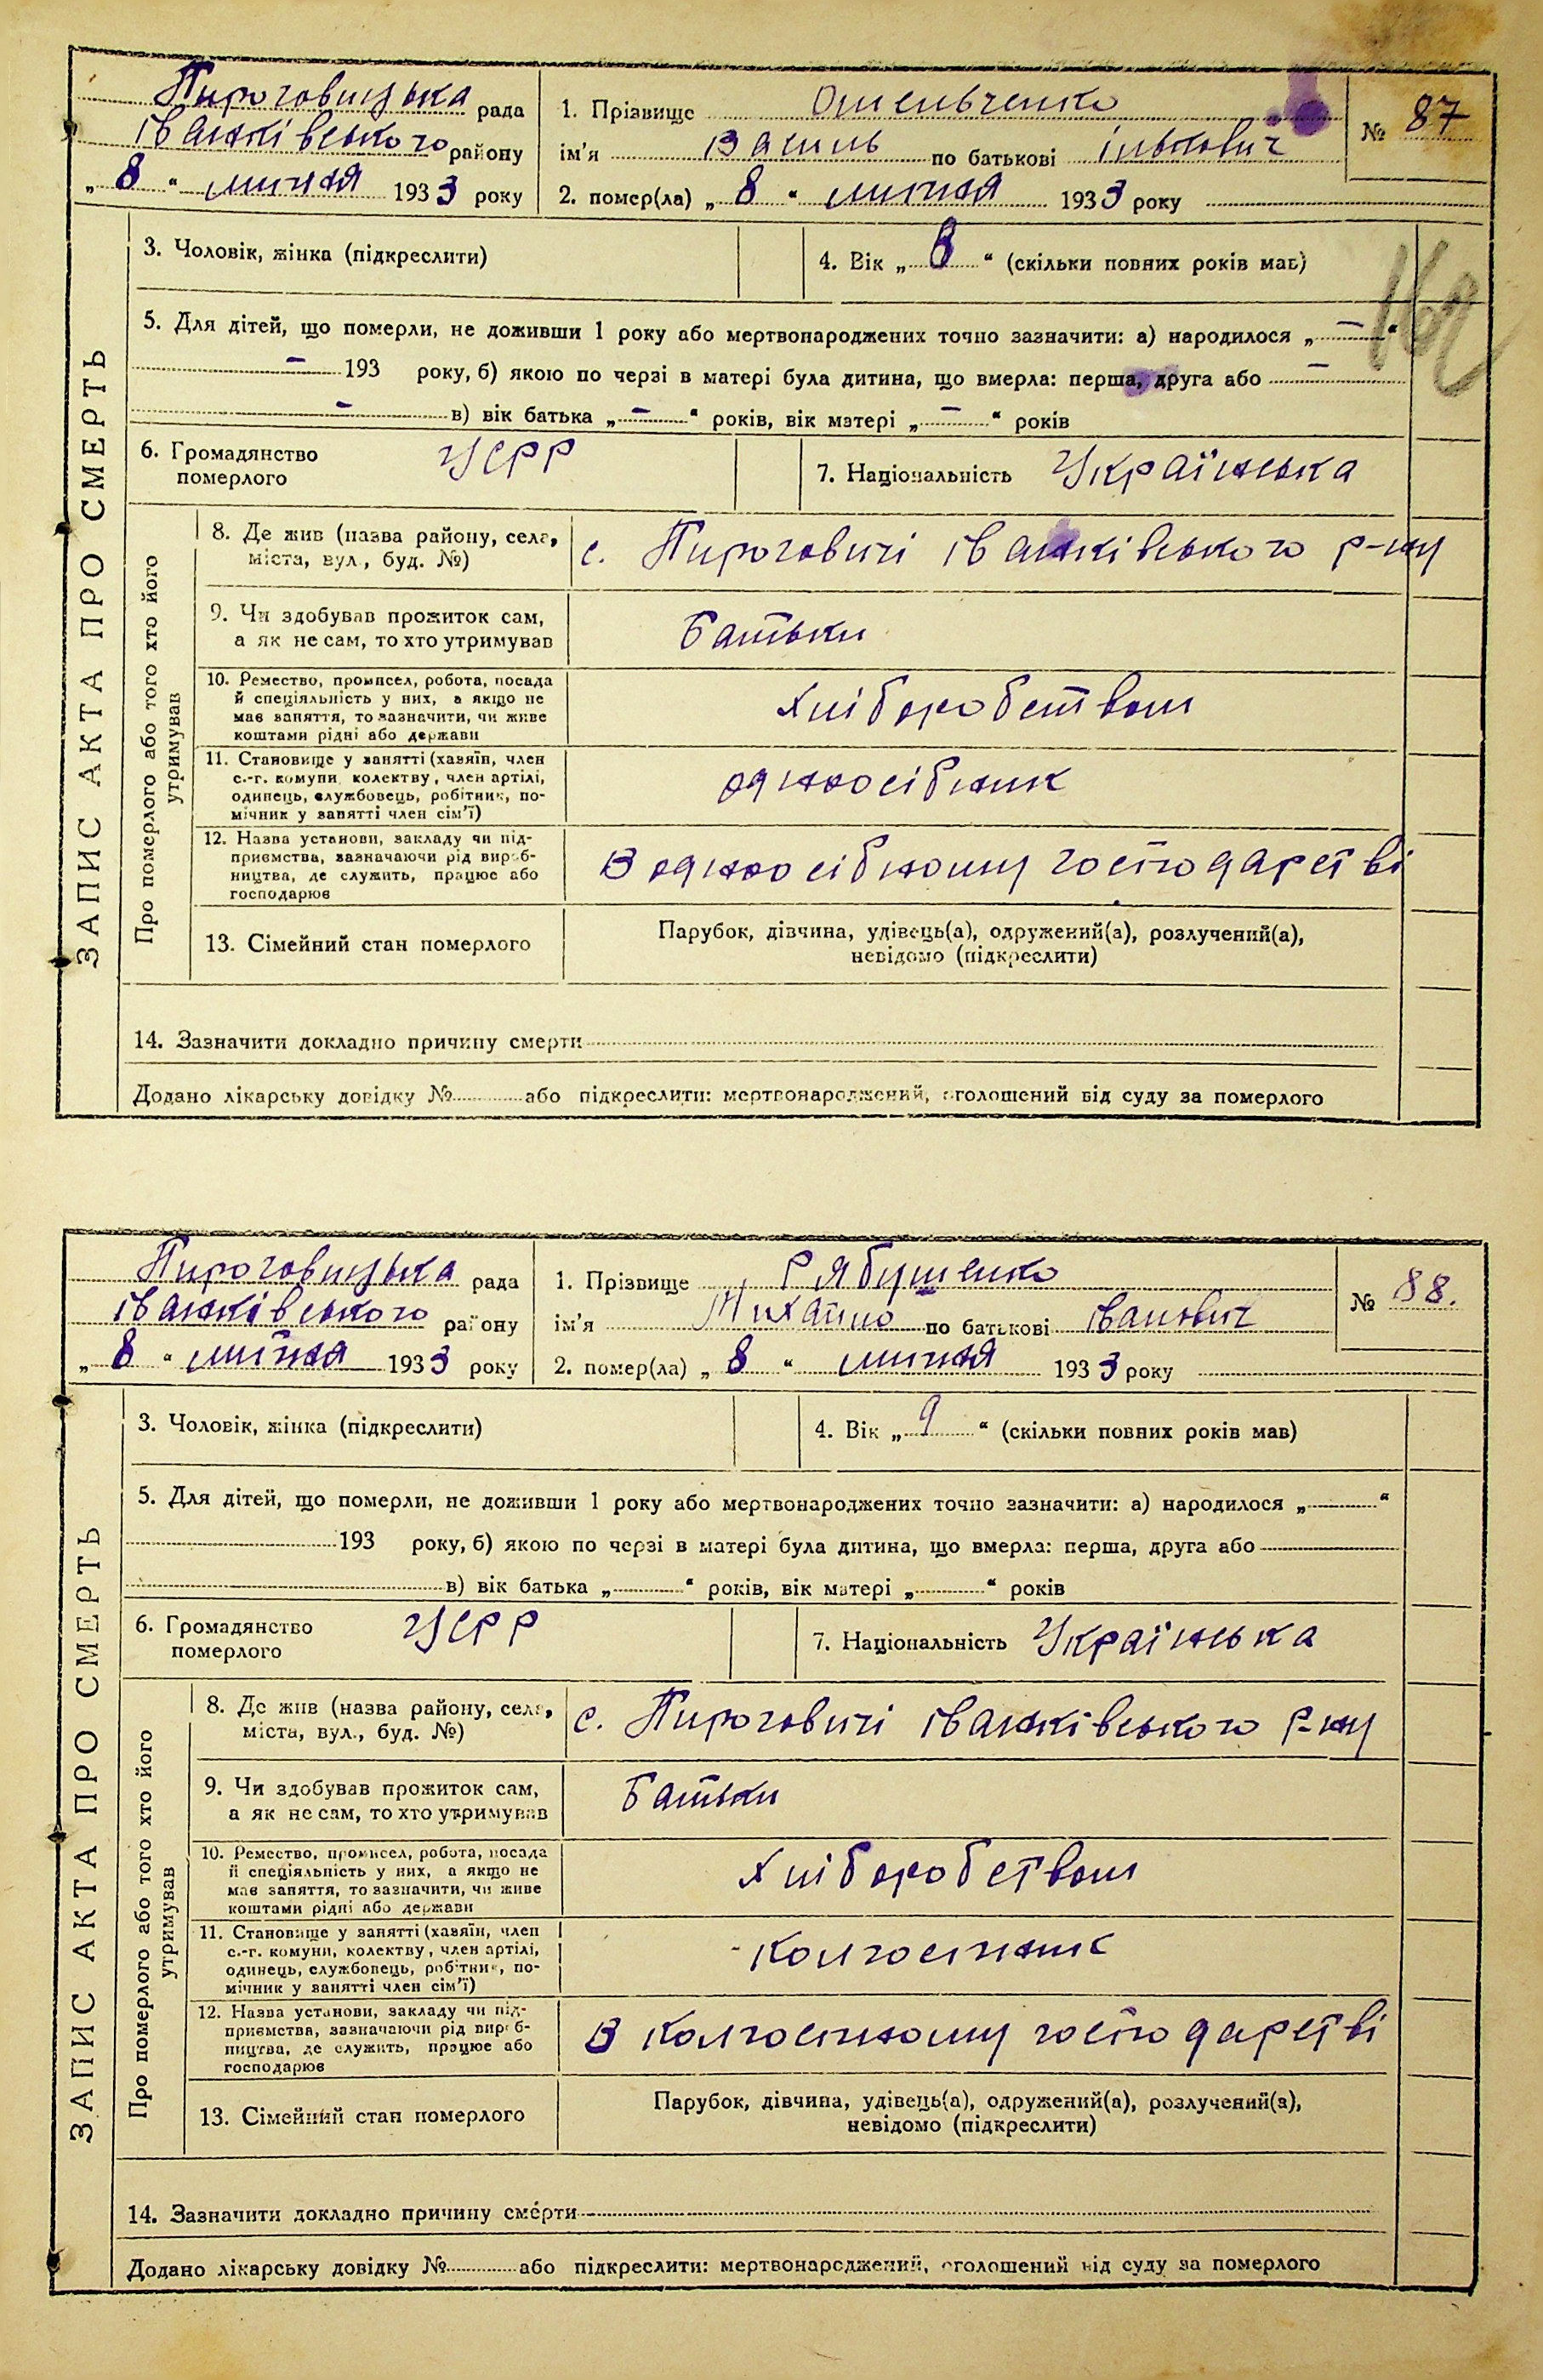 Пироговицька рада
іванківського району
„8“ липня 1933 року
1. Прізвище Омельченко
ім'я Василь по батькові ількович
2. помер(ла) „8“ липня 1933 року
№ 87
3. Чоловік, жінка (підкреслити)
4. Вік „8“ (скільки повних років мав)
162
5. Для дітей, що померли, не доживши 1 року або мертвонароджених точно зазначити: а) народилося „—“
— 193 року, б) якою по черзі в матері була дитина, що вмерла: перша, друга або —
— в) вік батька „—“ років, вік матері „—“ років
6. Громадянство
померлого
УСРР
7. Національність Українська
ЗАПИС АКТА ПРО СМЕРТЬ
Про померлого або того хто його
утримував
8. Де жив (назва району, села,
міста, вул., буд. №)
с. Пироговичі іванківського р-ну
9. Чи здобував прожиток сам,
а як не сам, то хто утримував
Батьки
10. Ремество, промисел, робота, посада
й спеціяльність у них, а якщо не
має заняття, то зазначити, чи живе
коштами рідні або держави
Хліборобством
11. Становище у занятті (хазяїн, член
с.-г. комуни, колектву, член артілі,
одинець, службовець, робітник, по-
мічник у занятті член сім'ї)
одноосібник
12. Назва установи, закладу чи під-
приємства, зазначаючи рід вироб-
ництва, де служить, працює або
господарює
В одноосібному господарстві
13. Сімейний стан померлого
Парубок, дівчина, удівець(а), одружений(а), розлучений(а),
невідомо (підкреслити)
14. Зазначити докладно причину смерти
Додано лікарську довідку № або підкреслити: мертвонароджений, оголошений від суду за померлого
Пироговицька рада
іванківського району
„8“ липня 1933 року
1. Прізвище Рябушенко
ім'я Михайло по батькові іванович
2. помер(ла) „8“ липня 1933 року
№ 88.
3. Чоловік, жінка (підкреслити)
4. Вік „9“ (скільки повних років мав)
5. Для дітей, що померли, не доживши 1 року або мертвонароджених точно зазначити: а) народилося „“
193 року, б) якою по черзі в матері була дитина, що вмерла: перша, друга або
в) вік батька „“ років, вік матері „“ років
6. Громадянство
померлого
УСРР
7. Національність Українська
ЗАПИС АКТА ПРО СМЕРТЬ
Про померлого або того хто його
утримував
8. Де жив (назва району, села,
міста, вул., буд. №)
с. Пироговичі іванківського р-ну
9. Чи здобував прожиток сам,
а як не сам, то хто утримував
Батьки
10. Ремество, промисел, робота, посада
й спеціяльність у них, а якщо не
має заняття, то зазначити, чи живе
коштами рідні або держави
Хліборобством
11. Становище у занятті (хазяїн, член
с.-г. комуни, колектву, член артілі,
одинець, службовець, робітник, по-
мічник у занятті член сім'ї)
Колгоспник
12. Назва установи, закладу чи під-
приємства, зазначаючи рід вироб-
ництва, де служить, працює або
господарює
В Колгоспному господарстві
13. Сімейний стан померлого
Парубок, дівчина, удівець(а), одружений(а), розлучений(а),
невідомо (підкреслити)
14. Зазначити докладно причину смерти
Додано лікарську довідку № або підкреслити: мертвонароджений, оголошений від суду за померлого